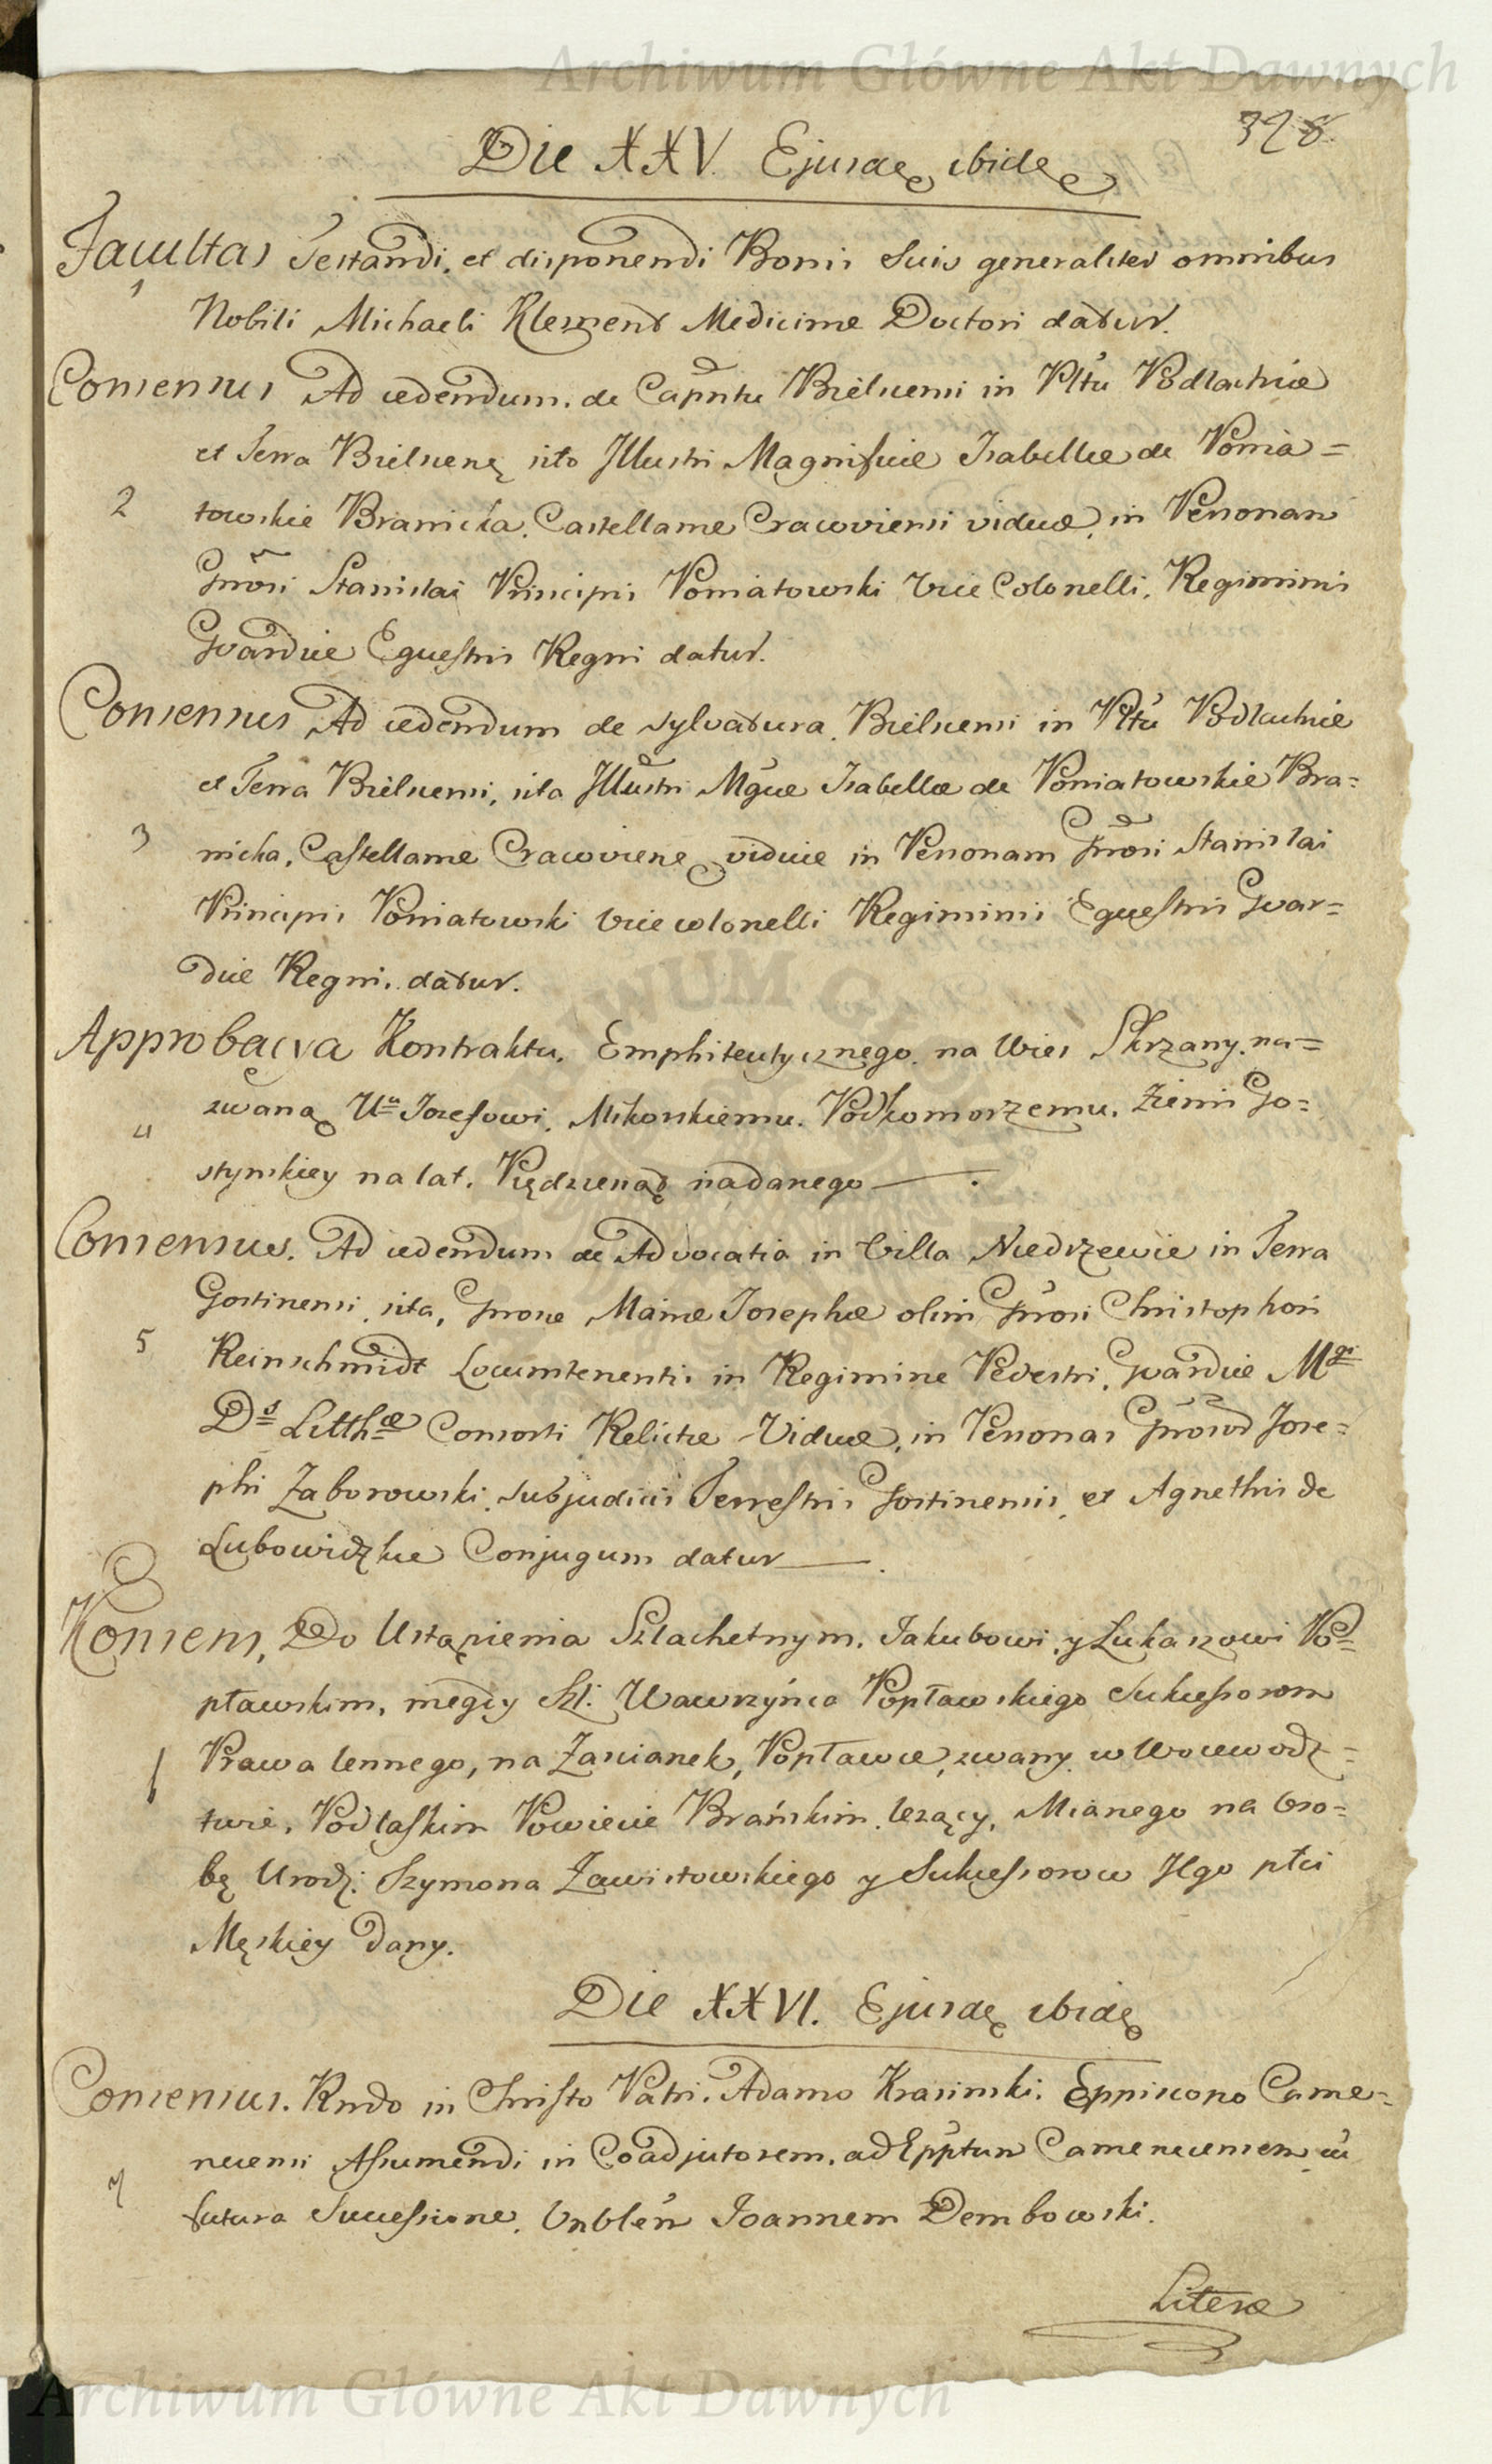 Archiwum Główne Akt Dawnych
328
Die XXV. Ejusdę ibidę
Facultas Testandi, et disponendi Bonis Suis generaliter omnibus
1
Nobili Michaeli Klement Medicinæ Doctori datur.
Consensus Ad cedendum de Capntu Bielscensi in Pltu Podlachiæ
et Terra Bielscenę sito Illustri Magnificæ Isabellæ de Ponia=
2
towskie Branicka, Castellanæ Cracoviensi viduæ, in Personam
Gnosi Stanislai Principis Poniatowski Vice Colonelli, Regiminis
Gvardiæ Equestris Regni datur.
Consensus Ad cedendum de sylvatura Bielscensi in Pltu Podlachiæ
et Terra Bielscensi, sita Illustri Mgcæ Isabellæ de Poniatowskie Bra=
3
nicka, Castellanæ Cracovienę viduæ in Personam Gnosi Stanislai
Principis Poniatowski Vice colonelli Regiminis Equestris Gvar=
diæ Regni datur.
Approbacya Kontraktu Emphiteutycznego na Wieś Skrzany na=
zwaną Uu Jozefowi Mikorskiemu Podkomorzemu Ziemi Go=
4
stynskiey na lat Piędziesiąt nadanego.
Consensus Ad cedendum de Advocatia in Villa Niedrzewie in Terra
Gostinensi sita, Gnosæ Mariæ Josephæ olim Gnosi Christophori
5
Reinschmidt Locumtenentis in Regimine Pedestri Gvardiæ Mgi
Ds Litthæ Consorti Relictæ Viduæ, in Personas Gnosor Jose=
phi Zaborowski Subjudicis Terrestris Gostinensis et Agnethis de
Lubowidzkie Conjugum datur.
Konsens, Do Ustąpienia Szlachetnym Jakubowi y Łukaszowi Po=
pławskim, niegdy Szl: Wawrzyńca Popławskiego Sukcessorom
6
Prawa lennego, na Zascianek, Popławce, zwany w Wojewodz=
twie Podlaskim Powiecie Brańskim leżący, Mianego na Oso=
bę Urodz: Szymona Zawistowskiego y Sukcessorow Jego płci
Męskiey dany.
Die XXVI. Ejusdę ibidę
Consensus. Rndo in Christo Patri Adamo Krasinski Eppiscopo Came=
necensi Assumendi in Coadjutorem, ad Epptum Camenecensem cu
7
futura Successione, Vnblem Joannem Dembowski.
Literæ
Archiwum Główne Akt Dawnych